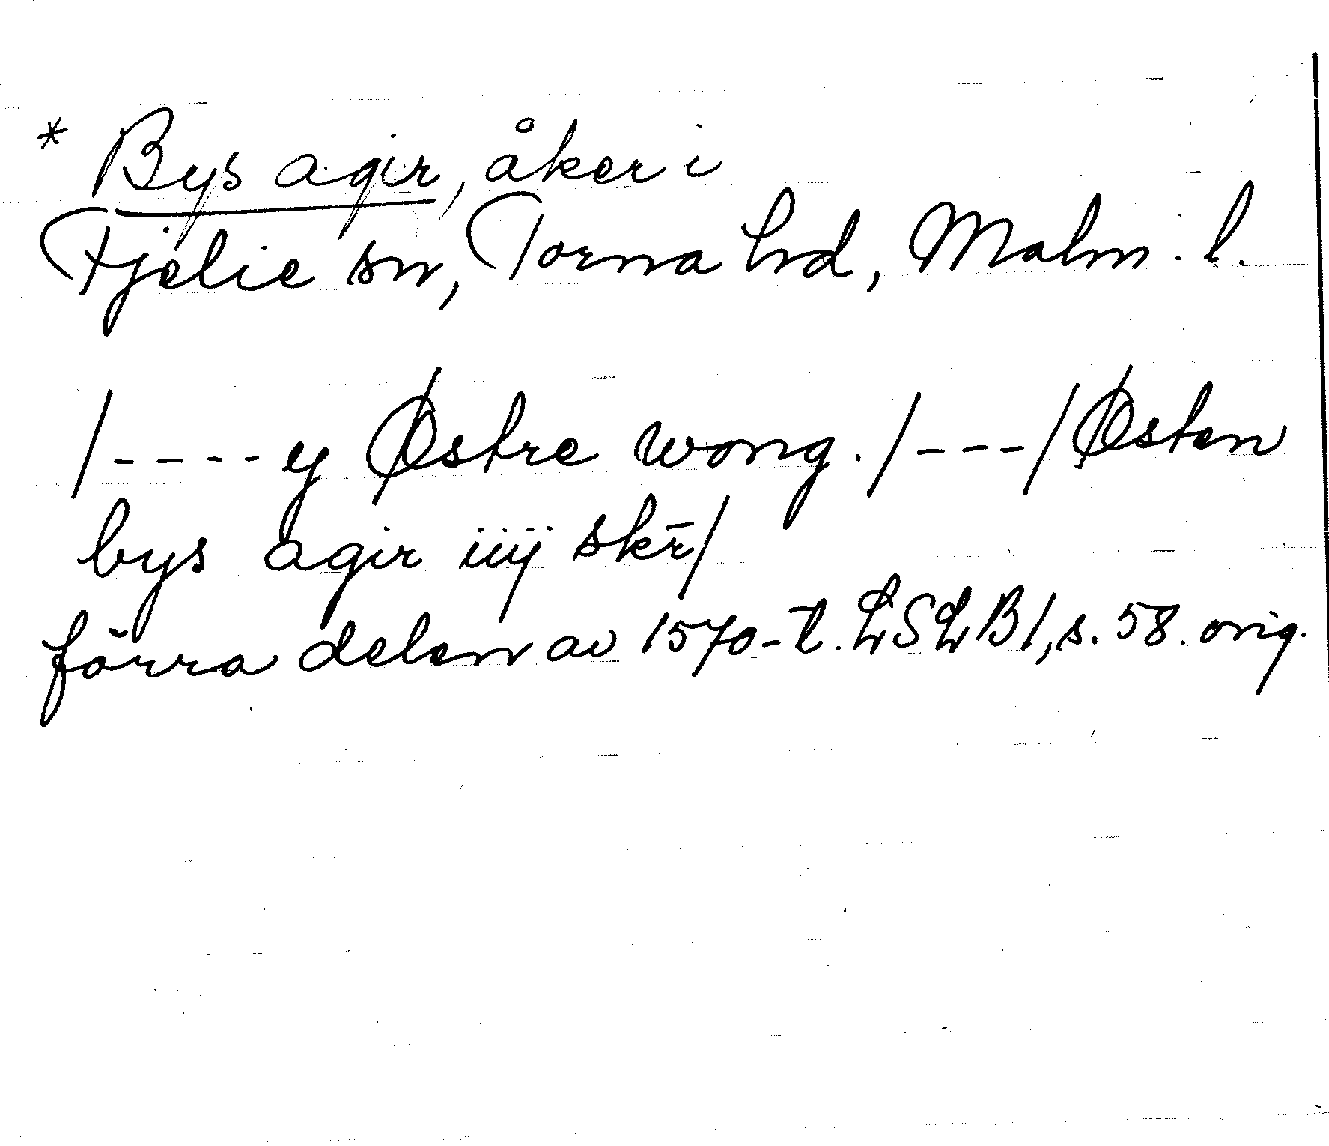 * Bys agir, åker i
Fjelie sn, Torna hd, Malm. l.
/---- y Østre wong. /---/ Østen
bys agir iiij skr̄/
förra delen av 1570-t. LSLB 1, s. 58. orig.